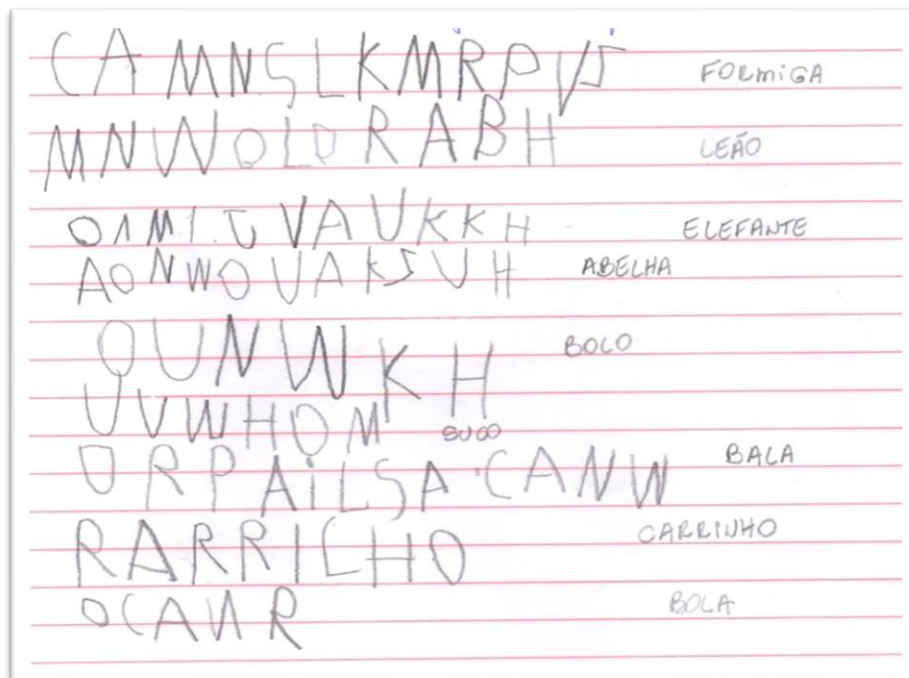 CAMNSLKMRPVS FORMIGA
MNWOLORABH LEÃO
OAMI.JVAUKKH ELEFANTE
AONWOUAKSUH ABELHA
OUNWKH BOLO
UVWHOM SUCO
ORPAILSA CANW BALA
RARRICHO CARRINHO
OCANR BOLA